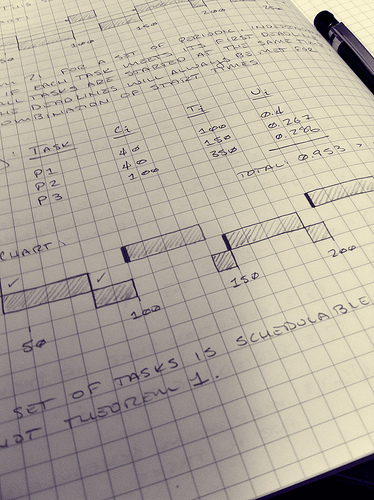 THIS
100
200
250
FOR A SET OF PERIODIC
IF EACH TASK MEETS ITS FIRST DEADLINE
ALL TASKS ARE STARTED AT THE SAME TIME
THE DEADLINES WILL ALWAYS BE MET FOR
COMBINATION OF START TIMES
TASK Ci Ti Ui
P1 40 100 0.4
P2 40 150 0.267
P3 100 350 0.286
TOTAL: 0.953 >
CHART:
50 100 150 200
SET OF TASKS IS SCHEDULABLE
NOT THEOREM 1.